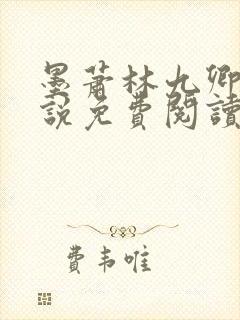 墨蕭林九卿
說免費閱讀
費韦唯